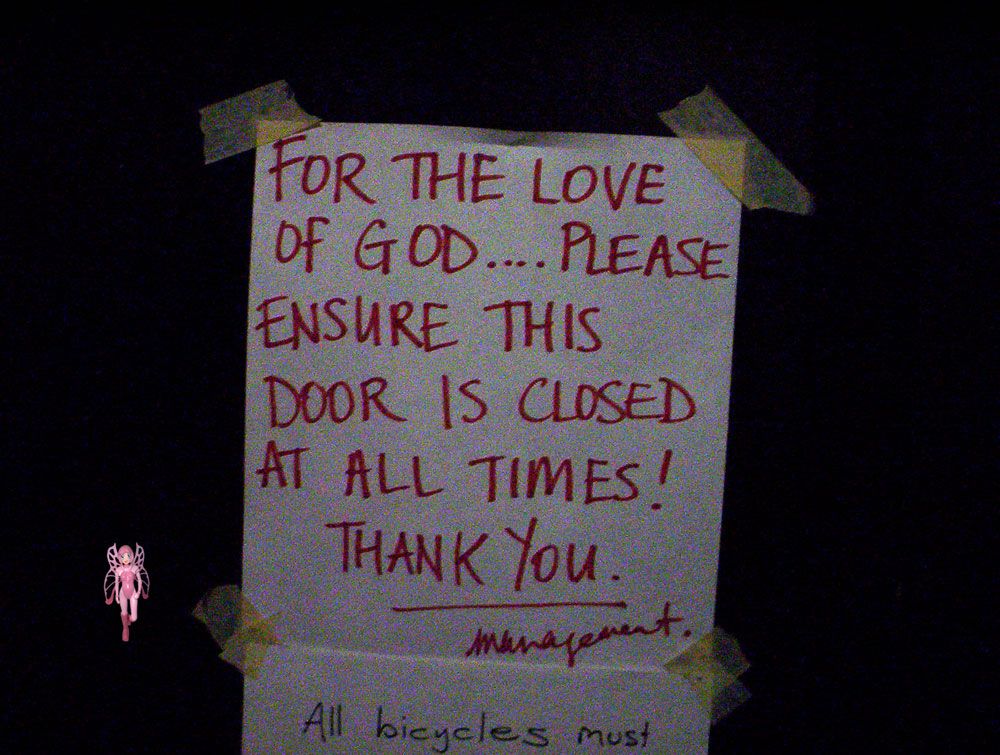 FOR THE LOVE
OF GOD.... PLEASE
ENSURE THIS
DOOR IS CLOSED
AT ALL TIMES!
THANK YOU.
management.
All bicycles must